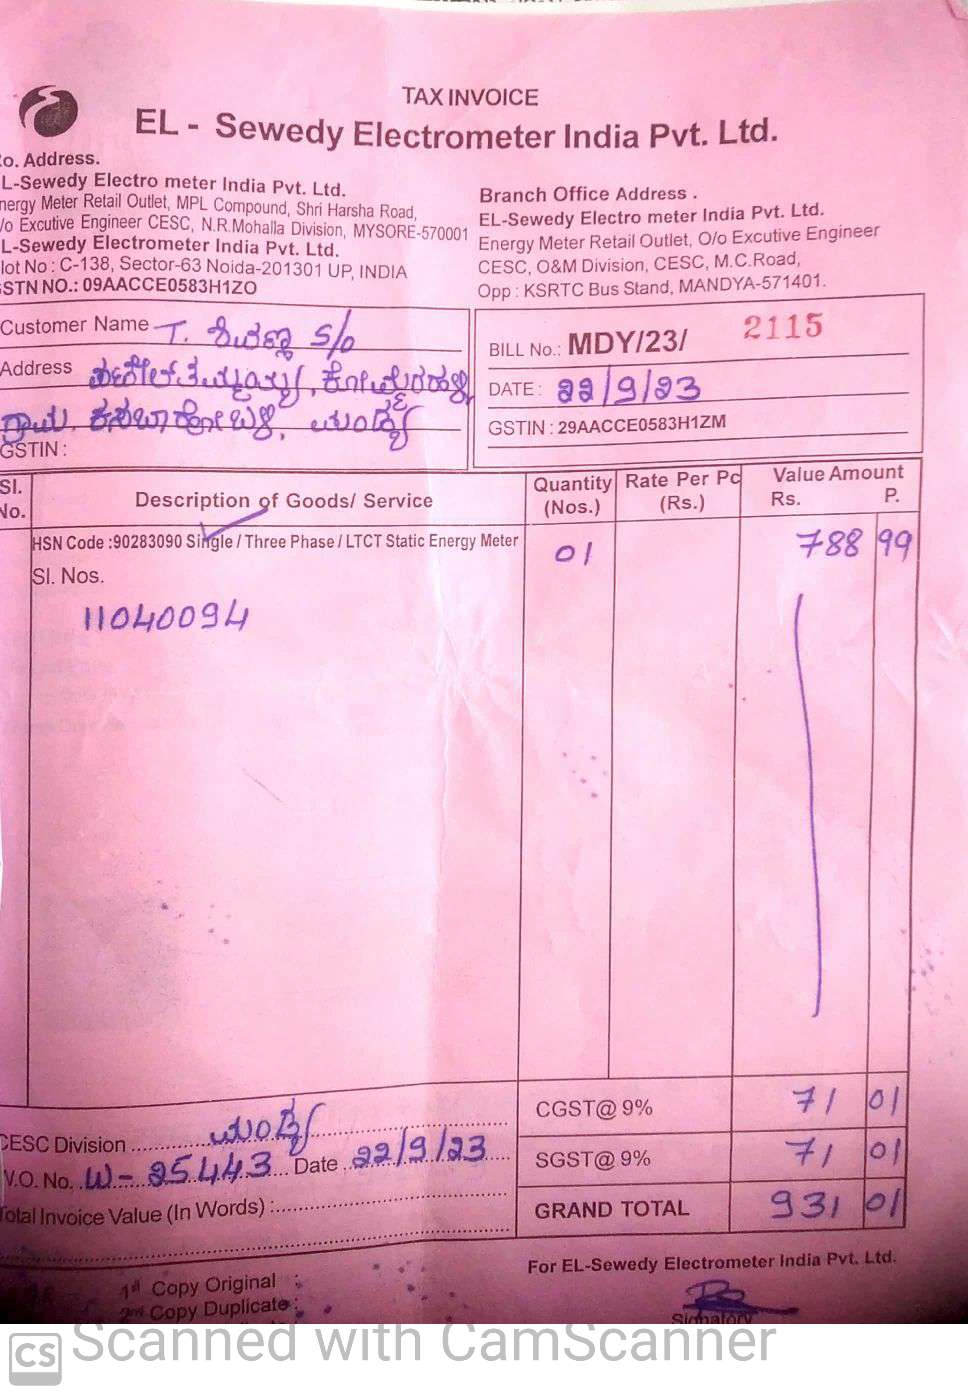 TAX INVOICE
EL - Sewedy Electrometer India Pvt. Ltd.
o. Address.
L-Sewedy Electro meter India Pvt. Ltd.
nergy Meter Retail Outlet, MPL Compound, Shri Harsha Road,
/o Excutive Engineer CESC, N.R.Mohalla Division, MYSORE-570001
L-Sewedy Electrometer India Pvt. Ltd.
lot No : C-138, Sector-63 Noida-201301 UP, INDIA
STN NO.: 09AACCE0583H1ZO
Branch Office Address .
EL-Sewedy Electro meter India Pvt. Ltd.
Energy Meter Retail Outlet, O/o Excutive Engineer
CESC, O&M Division, CESC, M.C.Road,
Opp : KSRTC Bus Stand, MANDYA-571401.
Customer Name T. ಶಿವಣ್ಣ S/o
Address
ಗ್ರಾಮ, ಕಸಬಾ ಹೋಬಳಿ, ಮಂಡ್ಯ
GSTIN :
BILL No.: MDY/23/ 2115
DATE : 22/9/23
GSTIN : 29AACCE0583H1ZM
Sl. No. Description of Goods/ Service Quantity (Nos.) Rate Per Pc (Rs.) Value Amount Rs. P.
HSN Code :90283090 Single / Three Phase / LTCT Static Energy Meter 01 788 99
Sl. Nos.
11040094
CGST@ 9% 71 01
CESC Division ............ ಮಂಡ್ಯ
SGST@ 9% 71 01
V.O. No. W- 25443 Date 22/9/23
GRAND TOTAL 931 01
Total Invoice Value (In Words) :
For EL-Sewedy Electrometer India Pvt. Ltd.
1st Copy Original :
2nd Copy Duplicate :
Signatory
CS Scanned with CamScanner